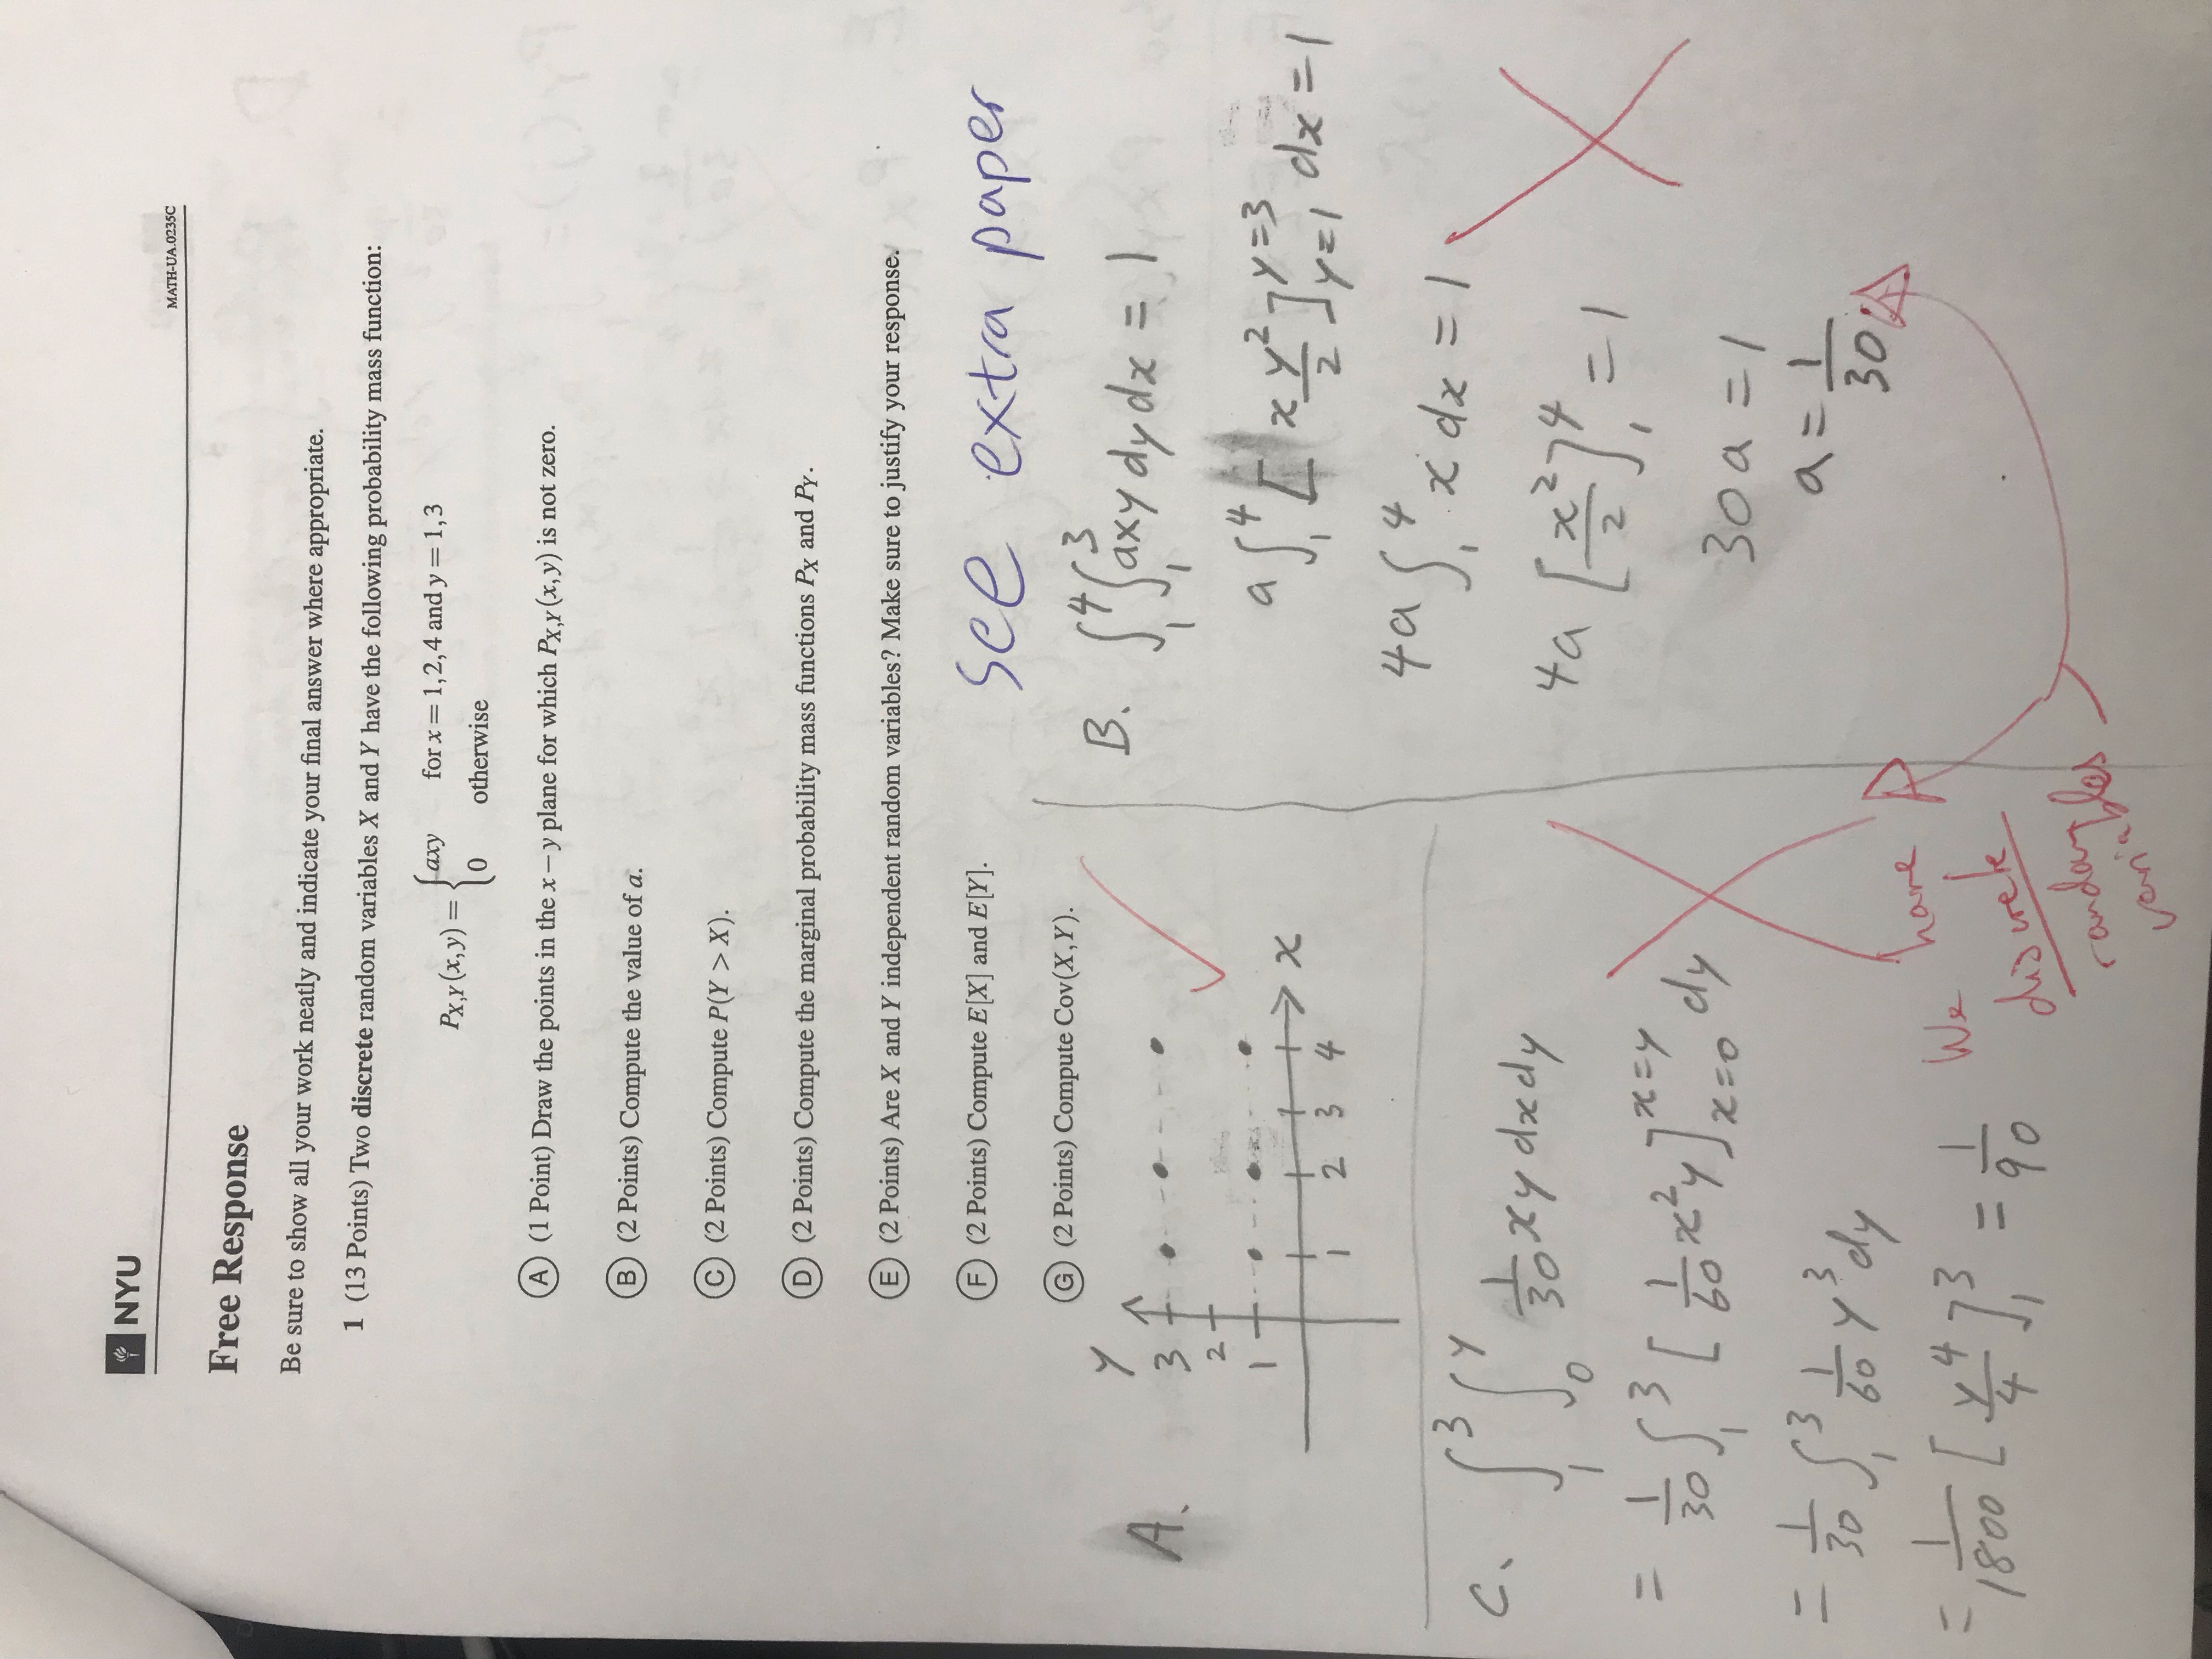 NYU
MATH-UA.0235C
Free Response
Be sure to show all your work neatly and indicate your final answer where appropriate.
1 (13 Points) Two discrete random variables X and Y have the following probability mass function:
P_{X,Y}(x,y) = { axy for x = 1,2,4 and y = 1,3
0 otherwise
A (1 Point) Draw the points in the x−y plane for which P_{X,Y}(x,y) is not zero.
B (2 Points) Compute the value of a.
C (2 Points) Compute P(Y > X).
D (2 Points) Compute the marginal probability mass functions P_X and P_Y.
E (2 Points) Are X and Y independent random variables? Make sure to justify your response.
F (2 Points) Compute E[X] and E[Y].
G (2 Points) Compute Cov(X,Y).
see extra paper
A.
Y
3
2
1
x
1 2 3 4
B. ∫_1^4 ∫_1^3 axy dy dx = 1
a ∫_1^4 [x y²/2]_{y=1}^{y=3} dx = 1
4a ∫_1^4 x dx = 1
4a [x²/2]_1^4 = 1
30a = 1
a = 1/30
C. ∫_1^3 ∫_0^y 1/30 xy dx dy
= 1/30 ∫_1^3 [1/60 x²y]_{x=0}^{x=y} dy
= 1/30 ∫_1^3 1/60 y³ dy
= 1/1800 [y⁴/4]_1^3 = 1/90
We have
discrete
random
variables